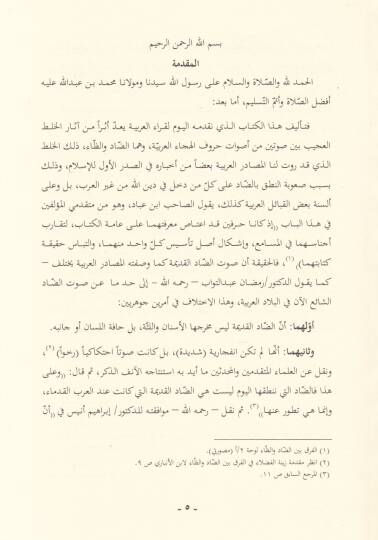 بسم الله الرحمن الرحيم
المقدمة
الحمد لله والصّلاة والسلام على رسول الله سيدنا ومولانا محمد بن عبدالله عليه
أفضل الصّلاة وأتمّ التّسليم، أما بعد:
فتأليف هذا الكتاب الذي نقدمه اليوم لقراء العربية يعدّ أثراً من آثار الخلط
العجيب بين صوتين من أصوات حروف الهجاء العربيّة، وهما الضّاد والظّاء، ذلك الخلط
الذي قد روت لنا المصادر العربية بعضاً من أخباره في الصدر الأول للإسلام، وذلك
بسبب صعوبة النطق بالضّاد على كلّ من دخل في دين الله من غير العرب، بل وعلى
ألسنة بعض القبائل العربية كذلك، يقول الصاحب ابن عباد، وهو من متقدمي المؤلفين
في هذا الباب ((إذ كانا حرفين قد اعتاص معرفتهما على عامة الكتاب، لتقارب
أجناسهما في المسامع، وإشكال أصل تأسيس كلّ واحد منهما، والتباس حقيقة
كتابتهما))(١)، فالحقيقة أن صوت الضّاد القديمة كما وصفته المصادر العربية يختلف –
كما يقول الدكتور/رمضان عبدالتواب – رحمه الله – إلى حد ما عن صوت الضّاد
الشائع الآن في البلاد العربية، وهذا الاختلاف في أمرين جوهريين:
أوّلهما: أنّ الضّاد القديمة ليس مخرجها الأسنان واللّثة، بل حافة اللسان أو جانبه.
وثانيهما: أنّها لم تكن انفجارية (شديدة)، بل كانت صوتاً احتكاكياً (رخواً)(٢)،
ونقل عن العلماء المتقدمين والمحدثين ما أيد به استنتاجه الآنف الذكر، ثم قال: ((وعلى
هذا فالضّاد التي ننطقها اليوم ليست هي الضّاد القديمة التي كانت عند العرب القدماء،
وإنما هي تطور عنها))(٣). ثم نقل – رحمه الله – موافقته للدكتور/ إبراهيم أنيس في ((أنّ
(١) الفرق بين الضّاد والظّاء لوحة ٢/أ (مصورتي).
(٢) انظر مقدمة زينة الفضلاء في الفرق بين الضّاد والظّاء لابن الأنباري ص ٩.
(٣) المرجع السابق ص ١١.
- ٥ -